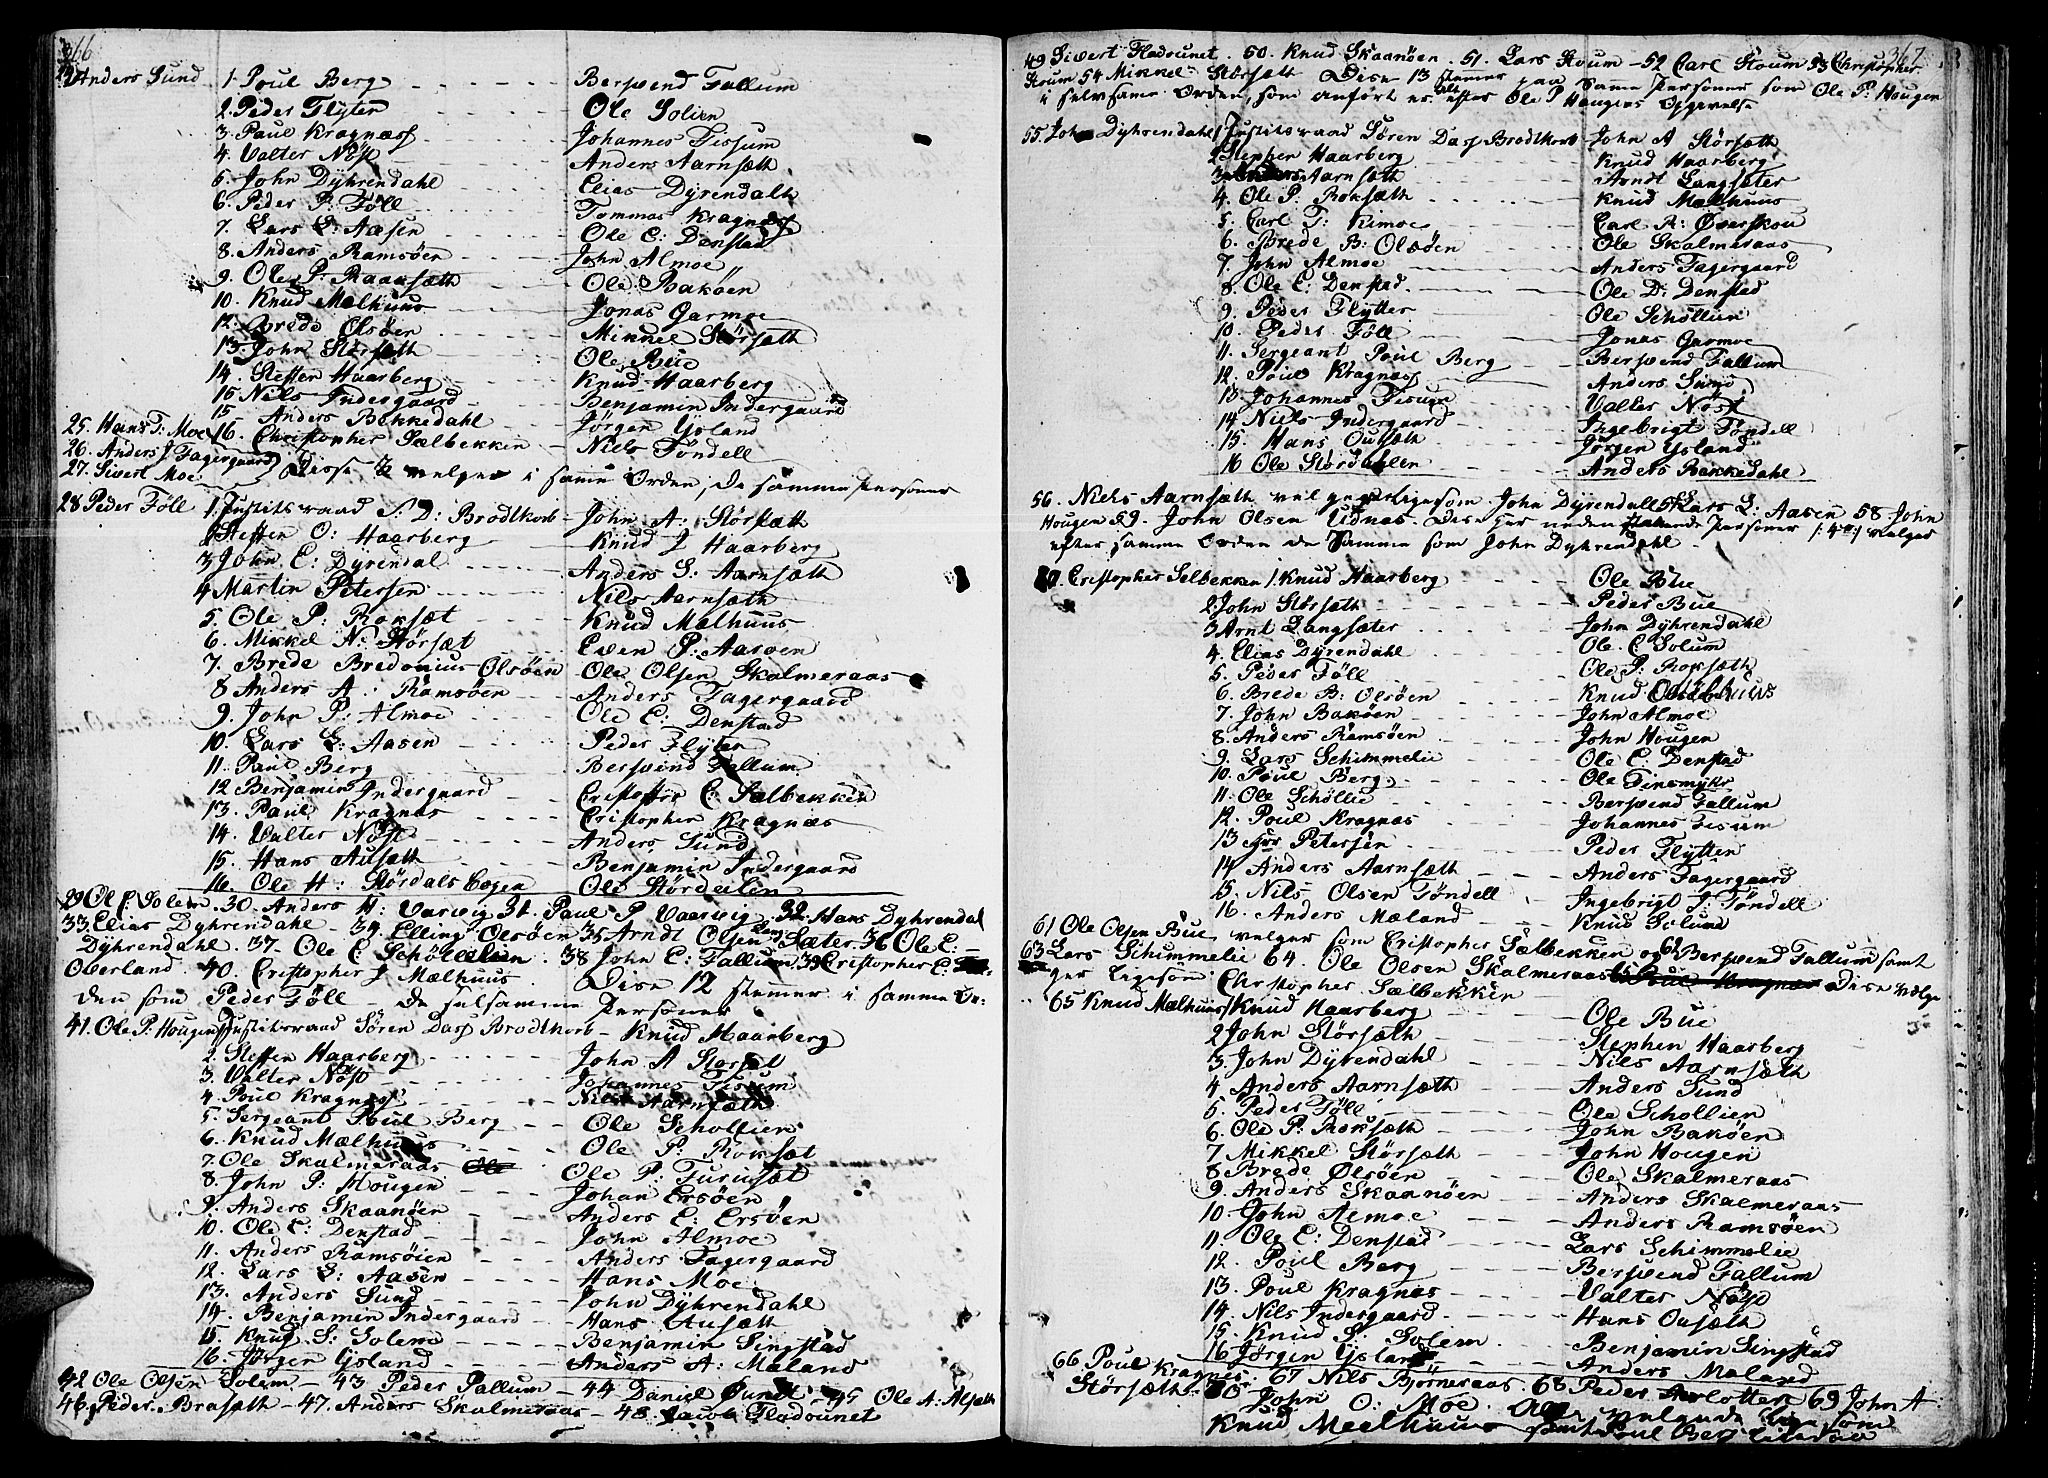 366
24 Anders Sund 1. Poul Berg Berswend Fallum
2. Peder Flyter Ole Solien
3. Paul Kragnæss Johannes Tissum
4. Valter Nöst Anders Aarnsæth
5. John Dÿhrendahl Elias Dÿrendalh
6. Peder P: Föll Tommas Kragnæss
7. Lars L: Aasen Ole E: Denstad
8. Anders Ramsöen John Almoe
9. Ole P: Roaksæth Ole Baköen
10. Knud Mælhuus Jonas Garmoe
12. Brede Olsöen Mikkel Störsæth
13. John Störsæth Ole Bue
14. Steffen Haarberg Knud Haarberg
15 Nils Indergaard Benjamin Indergaard
15 Anders Bekkedahl Jørgen Ysland
25. Hans T: Moe 16. Christopher Sælbekken Niels Töndell
26. Anders J Fagergaard
27. Sivert Moe Disse 3 velger i samme Orden, de samme Personer
28 Peder Föll 1. Justitsraad S: D: Brodtkorb John A: Störsæth
2 Steffen O: Haarberg Knud J Haarberg
3 John E: Dÿrendal Anders S: Aarnsæth
4 Martin Petersen Nils Aarnsæth
5. Ole P. Roksæt Knud Mælhuus
6. Mikkel N: Störsæt Even P: Aasöen
7. Brede Bredonius Olsöen Ole Olsen Skalmeraas
8 Anders A: Ramsöen Anders Fagergaard
9. John P: Almoe Ole E: Denstad
10. Lars L: Aasen Peder Flyter
11. Paul Berg Berswend Fallum
12 Benjamin Indergaard Cristoffer C: Sælbekken
13. Paul Kragnæs Cristopher Kragnæs
14. Valter Nöst Anders Sund
15. Hans Ausæth Benjamin Indergaard
16. Ole H: Stördals bogen Ole Stördeilen
29 Ole C: Solem. 30. Anders H: Varvig 31. Paul P Vaarvig. 32. Hans Dyhrendal
33. Elias Dyhrendahl - 34. Elling Olsöen 35 Arndt Olsen Langsæter 36 Ole E:
Dÿhrendahl. 37. Ole C Schöllelien. 38 John E: Fallium 39 Cristopher E:
Overland. 40. Cristopher J Mælhuus. Disse 12 stemmer i samme Or-
den som Peder Föll - de selsamme Personer
41. Ole P: Hougen 1 Justitsraad Sören Dass Brodtkorb - Knud Haarberg
2. Steffen Haarberg John A Störsæt
3. Valter Nöst Johannes Tisum
4. Poul Kragnæss Niels Aarnsæth
5. Sergeant Poul Berg Ole Schollien
6. Knud Mælhuus Ole P: Roksæt
7. Ole Skalmeraas Ole P: Furusæt
8. John P: Hougen Johan Ersöen
9. Anders Skaanöen Anders E: Ersöen
10. Ole E: Denstad John Almoe
11. Anders Ramsöien Anders Fagergaard
12. Lars L: Aasen Hans Moe
13. Anders Sund John Dÿhrendahl
14. Benjamin Indergaard Hans Ausæth
15. Knud S: Solem Benjamin Singstad
16. Jørgen Ysland Anders A: Mæland
42 Ole Olsen Solem - 43 Peder Fallum - 44 Daniel 45 Ole A: Alsæth
46. Peder Brasæth - 47. Anders Skalmeraas - 48 Jacob Fladvunet
367
49 Sivert Fladvunet. 50. Knud Skaanöen. 51. Lars Roum - 52 Carl Roum 53 Christopher
Roum 54 Mikkel Störsæth Disse 13 stemer paa samme Personer som Ole P: Hougen
i selvsame Orden, som anfört er alt efter Ole P Hougens Opgivelse
55. John Dÿhrendahl 1 Justitsraad Sören Dass Brodtkorb John A Störsæth
2 Stepher Haarberg Knud Haarberg
3 Anders Aarnsæth Arndt Langsæter
4. Ole P: Roksæth Knud Mælhuus
5. Carl T: Kimoe Carl A: Överskou
6. Brede B: Olsöen Ole Skalmeraas
7. John Almoe Anders Fagergaard
8. Ole E: Denstad Ole D: Denstad
9. Peder Flytter Ole Schöllien
10. Peder Föll Jonas Garmoe
11. Sergeant Poul Berg Berswend Fallum
12. Poul Kragnæss Anders Sund
13. Johannes Tisum Valter Nöst
14 Niels Indergaard Ingebrigt Töndell
15. Hans Ousæth Jørgen Ysland
16 Ole Stördahlen Anders Bakkedahl
56. Niels Aarnsæth velger ligesom John Dÿrendall 57 Lars L: Aasen 58 John
Hougen 59. John Olsen Udnæs. Disse personer velger
efter samme Orden de samme som John Dÿhrendahl.
60. Cristopher Selbekken 1. Knud Haarberg Ole Bue
2. John Störsæth Peder Bue
3 Arnt Langsæter John Dÿhrendahl
4. Elias Dÿrendahl Ole C Solum
5. Peder Föll Ole P: Roksæth
6. Brede B: Olsöen Knud Mælhuus
7. John Baköen John Almoe
8. Anders Ramsöen John Hougen
9. Lars Schimmelie Ole E: Denstad
10. Poul Berg Ole Finsmyhr
11. Ole Schöllie Berswend Fallum
12. Poul Kragnæs Johannes Tisum
13 Petersen Peder Flytten
14 Anders Aarnsæth Anders Fagergaard
15. Nils Olsen Töndell Ingebrigt J: Töndell
16. Anders Mæland Knud Solum
61 Ole Olsen Bue velger som Cristopher Sælbekken og 62 Berswend Fallum samt
63 Lars Schimmelie 64. Ole Olsen Skalmeraas Disse vælge
ger ligesom Christopher Sælbekken
65 Knud Mælhuus 1 Knud Haarberg Ole Bue
2 John Störsæth Stephen Haarberg
3. John Dÿrendahl Nils Aarnsæth
4 Anders Aarnsæth Anders Sund
5. Peder Föll Ole Schollien
6. Ole P: Roksæth John Baköen
7. Mikkel Störsæth John Hougen
8 Brede Ölsöen Ole Skalmeraas
9. Anders Skaanöen Anders Skalmeraas
10. John Almoe Anders Ramsöen
11. Ole E: Denstad Lars Schimmelie
12. Poul Berg Berswend Fallum
13. Poul Kragnæs Valter Nöst
14. Nils Indergaard Hans Ousæth
15. Knud S: Solem Benjamin Singstad
16 Jørgen Ysland Anders Mæland
66. Poul Kragnes. 67 Nils Bjørneraas. 68 Peder 69 John A:
Störsæth. 70 John O: Moe. velger som
Knud Meelhuus samt Poul Berg